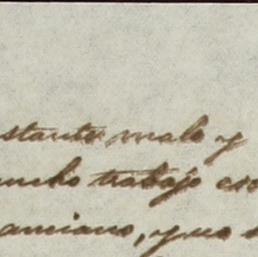 stante malo y
ucho trabajo es
amiano, y no